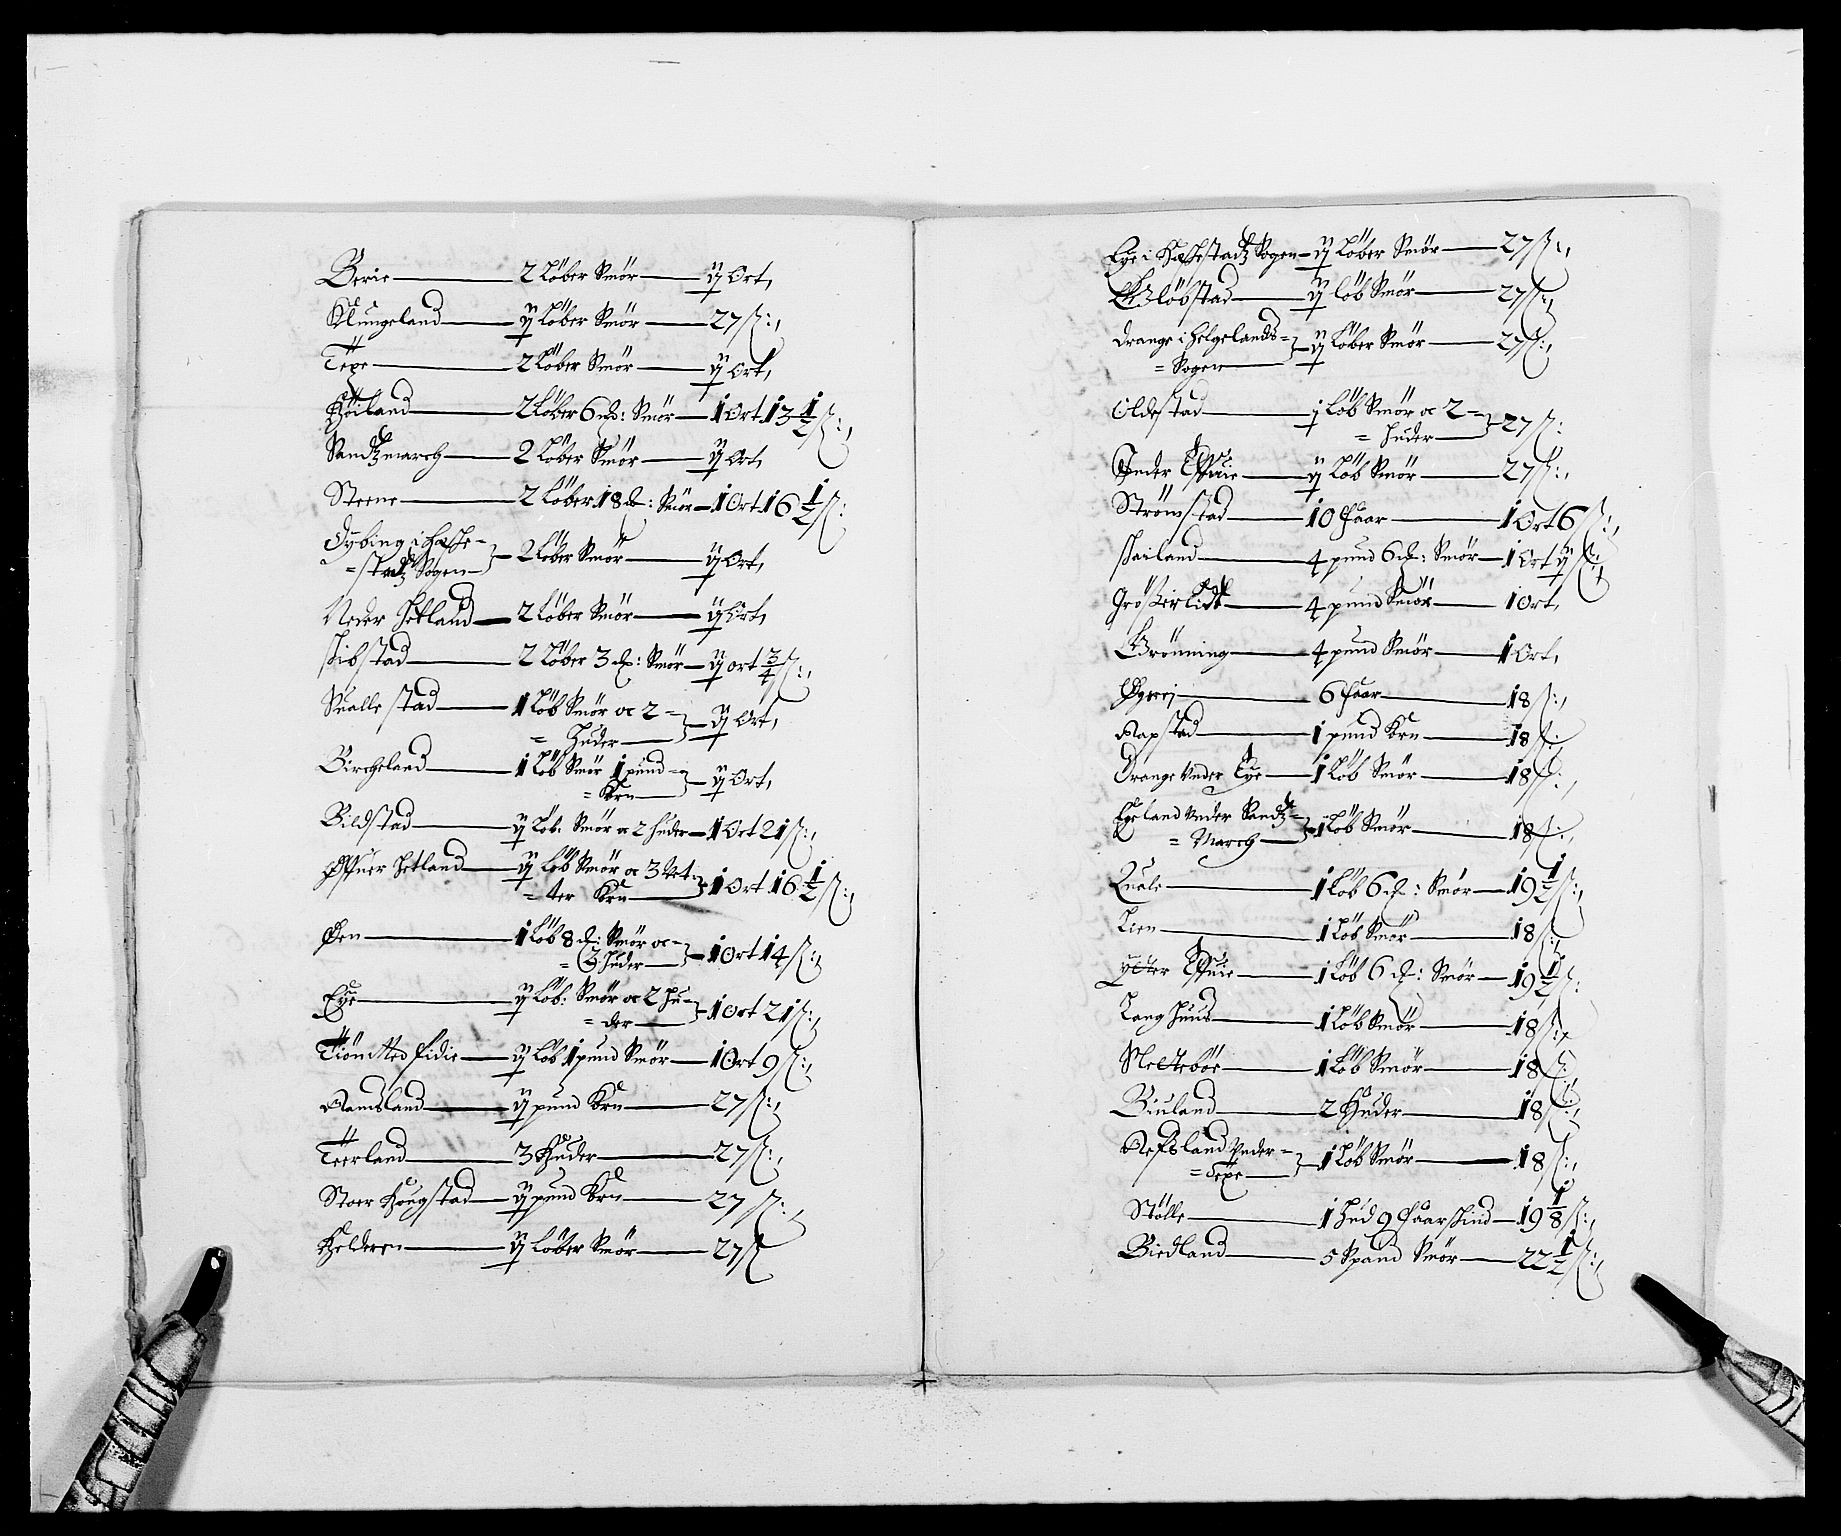 Berie 2 Löber Smör ij Ort,
Klungeland ij Löber Smör 27 ß:,
Tepe 2 Löber Smör ij Ort,
Höiland 2 Löber 6 mk: Smör 1 Ort 13 1/2 ß:,
Sandtzmarch 2 Löber Smör ij Ort,
Steene 2 Löber 18 mk: Smör 1 Ort 16 1/2 ß:
Dybing i Hæshe-
=stadtz Sogen 2 Löber Smör ij Ort,
Neder Hetland 2 Löber Smör ij Ort,
Shibstad 2 Löber 3 mk: Smör ij ort 3/4 ß:,
Snallestad 1 Löb Smör oc 2=
= Huder ij Ort,
Bircheland 1 Löb Smör 1 pund=
= Krn ij Ort,
Bildstad ij Löb: Smör oc 2 huder 1 Ort 21 ß:,
Øffuer Hetland ij Löb Smör oc 3 Vet=
=ter Krn 1 Ort 16 1/2 ß:,
Øen 1 Löb 8 mk: Smör oc=
= 3 huder 1 Ort 14 ß:,
Eye ij Löb: Smör oc 2 hu=
= der 1 Ort 21 ß:,
Tiön Med Fidie ij Löb 1 pund Smör 1 Ort 9 ß:,
Ramsland ij pund Krn 27 ß:,
Teerland 3 Huder 27 ß:,
Stoer Hougstad ij pund Krn 27 ß:,
Helderen ij Löber Smör 27 ß
Eye i Hæshestadtz Sogen ij Löber Smör 27 ß:,
Glöbstad ij löb Smör 27 ß:,
Drange i Helgelands=
= Sogen ij Löber Smör 27 ß:,
Oldestad 1 Löb Smör oc 2=
= Huder 27 ß:
Inder Effuie ij Löb Smör 27 ß:,
Strömstad 10 Faar 1 Ort 6 ß:,
Shailand 4 pund 6 mk: Smör 1 Ort ij ß:,
4 pund Smör 1 Ort,
Grönning 4 pund Smör 1 Ort,
Øgreij 6 Faar 18 ß:,
Rapstad 1 pund Krn 18 ß:
Drange Under Eye 1 Löb Smör 18 ß:,
Egeland Under Sandtz=
= March 1 Löb Smör 18 ß:,
Quale 1 Löb 6 mk: Smör 19 1/2 ß:,
Lien 1 Löb Smör 18 ß:,
Ytter Effuie 1 Löb 6 mk: Smör 19 1/2 ß:
Langhuus 1 Löb Smör 18 ß:,
Mettebör 1 Löb Smör 18 ß:
Biuland 2 Huder 18 ß:,
Refsland Under=
= Tepe 1 Löb Smör 18 ß:,
Stölle 1 hud 9 Faarshind 19 1/8 ß:,
Biedland 5 Spand Smör 22 1/2 ß:,